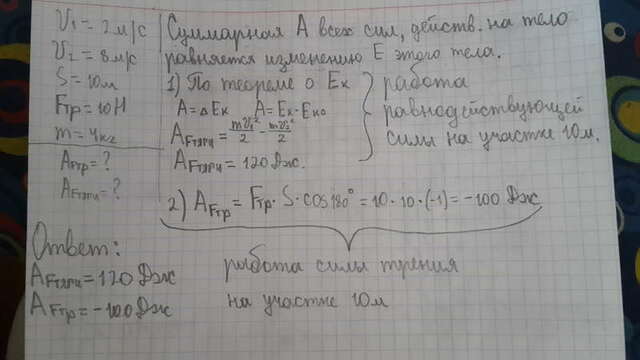 V₁ = 2 м/с
V₂ = 8 м/с
S = 10 м
Fтр = 10 Н
m = 4 кг
AFтр = ?
AFтяги = ?
Суммарная A всех сил, действ. на тело
равняется изменению E этого тела.
1) По теореме о Eк
A = ΔEк A = Eк - Eк₀
AFтяги = mV₂²/2 - mV₁²/2
AFтяги = 120 Дж.
работа
равнодействующей
силы на участке 10м.
2) AFтр = Fтр · S · cos 180° = 10 · 10 · (-1) = -100 Дж
работа силы трения
на участке 10м
Ответ:
AFтяги = 120 Дж
AFтр = -100 Дж